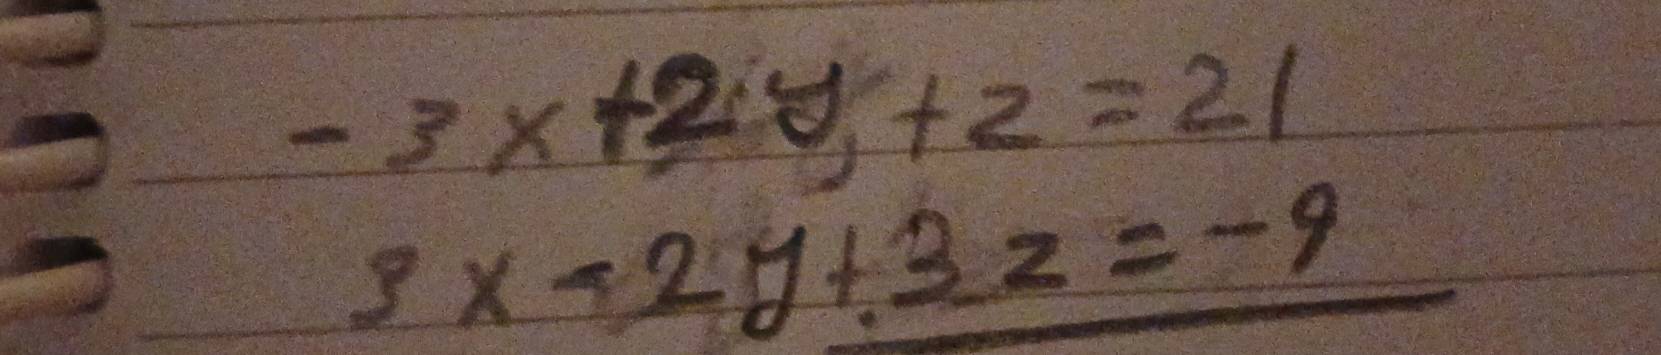 -3x+2y+z=21
3x-2y+3z=-9